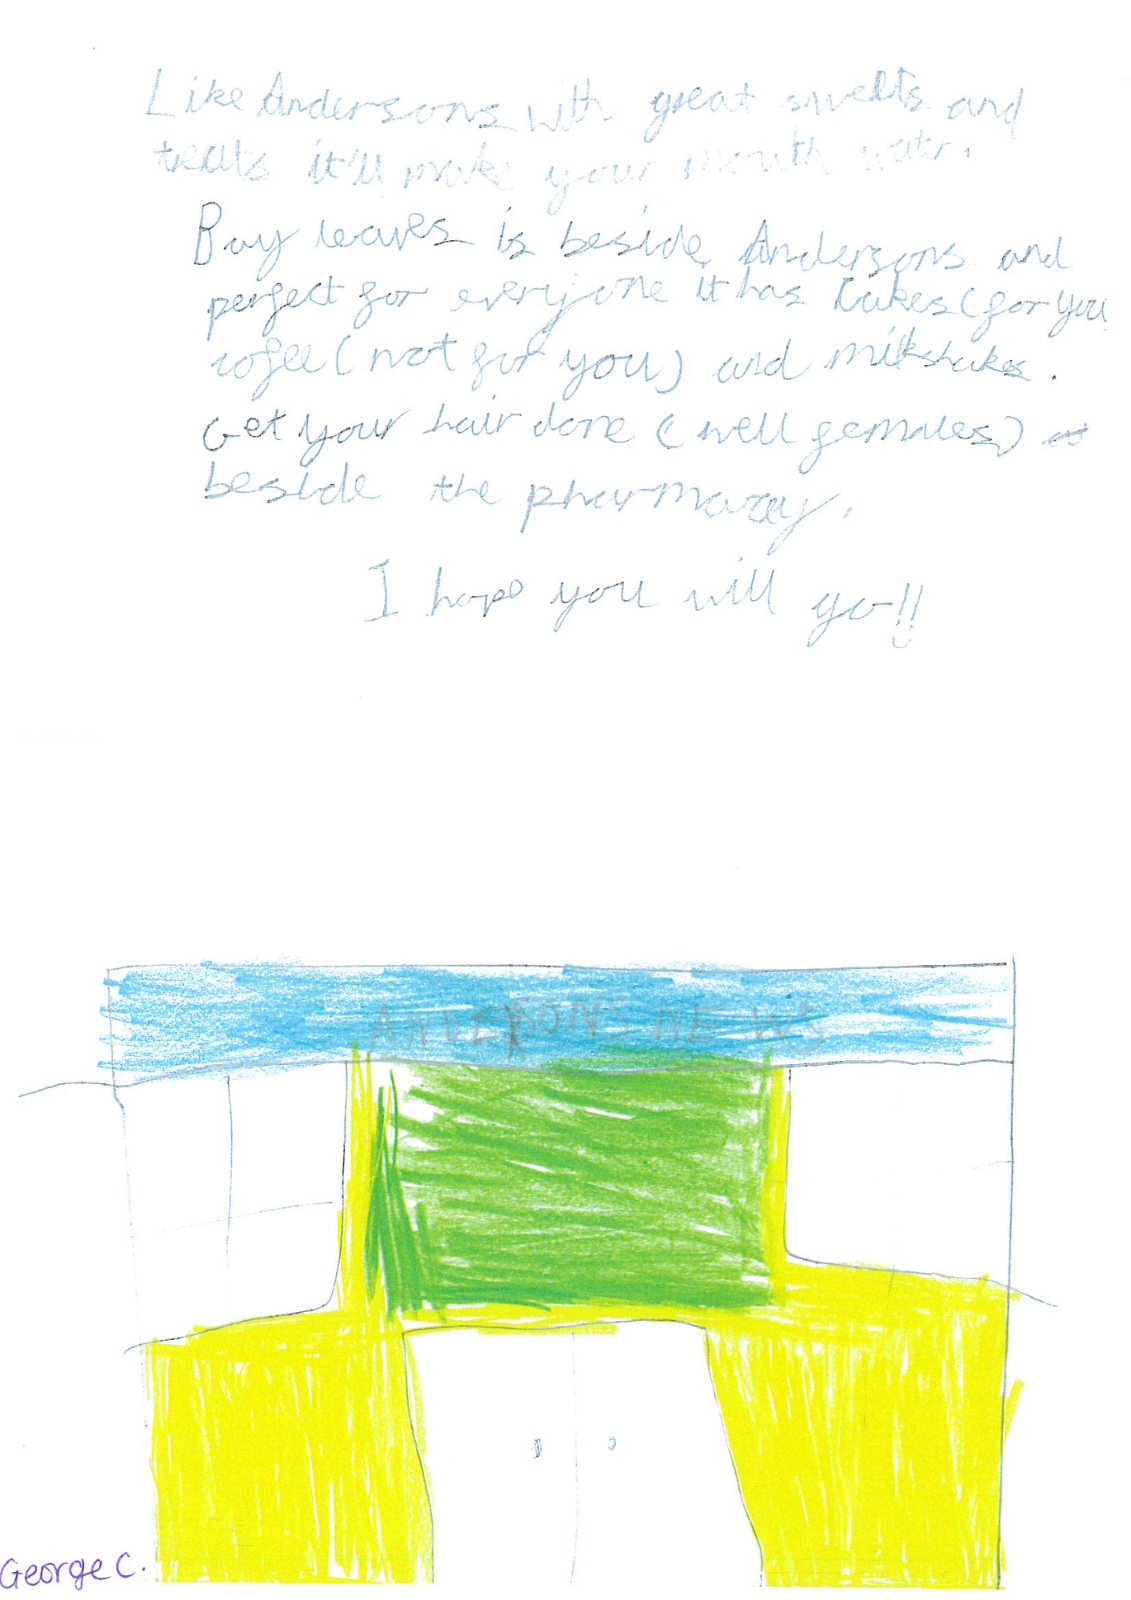 Like Andersons with great smells and
treats it'll make your mouth water.
Bay leaves is beside Andersons and
perfect for everyone it has Cakes (for you
cofee (not for you) and milkshakes.
Get your hair done (well females)
beside the pharmacy.
I hope you will go!!
ANDERSONS NEWS
George C.